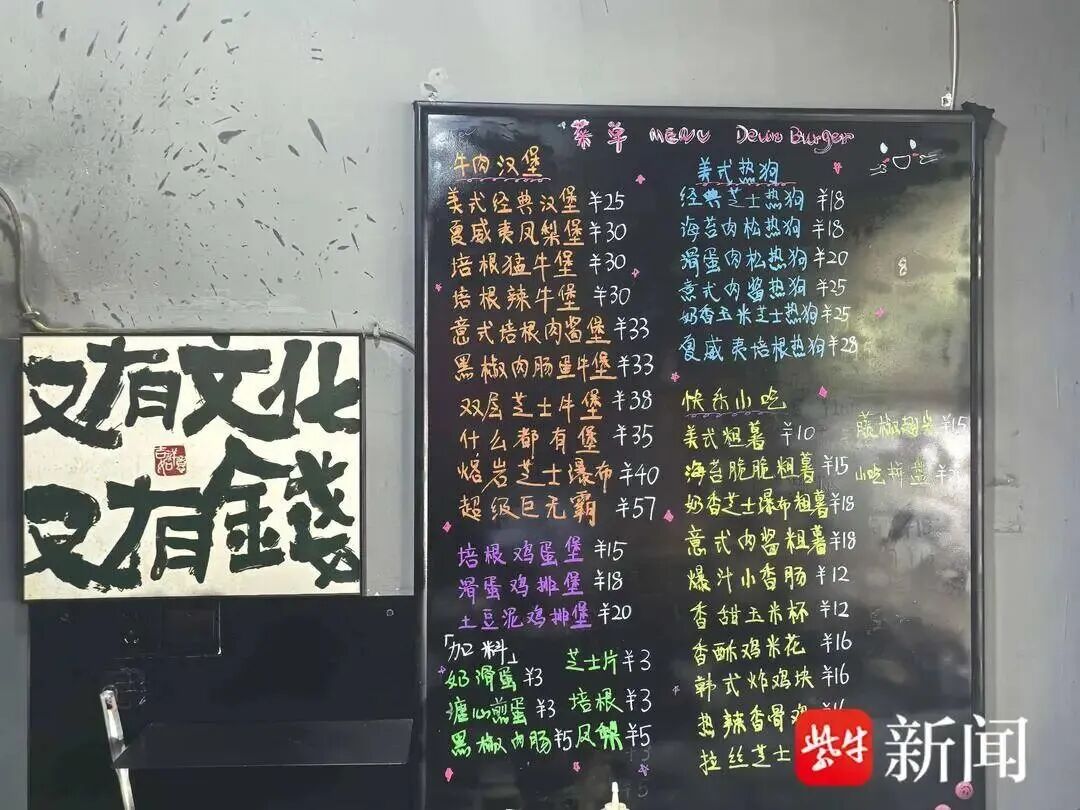 菜单 MENU Down Burger
牛肉汉堡
美式经典汉堡 ¥25
夏威夷凤梨堡 ¥30
培根猛牛堡 ¥30
培根辣牛堡 ¥30
意式培根肉酱堡 ¥33
黑椒肉肠蛋牛堡 ¥33
双层芝士牛堡 ¥38
什么都有堡 ¥35
熔岩芝士瀑布 ¥40
超级巨无霸 ¥57
培根鸡蛋堡 ¥15
滑蛋鸡排堡 ¥18
土豆泥鸡排堡 ¥20
「加料」 芝士片 ¥3
奶滑蛋 ¥3 培根 ¥3
溏心煎蛋 ¥3
黑椒肉肠 ¥5 凤梨 ¥5
美式热狗
经典芝士热狗 ¥18
海苔肉松热狗 ¥18
滑蛋肉松热狗 ¥20
意式肉酱热狗 ¥25
奶香玉米芝士热狗 ¥25
夏威夷培根热狗 ¥28
快乐小吃
美式粗薯 ¥10
藤椒翅尖 ¥15
海苔脆脆粗薯 ¥15
小吃拼盘
奶香芝士瀑布粗薯 ¥18
意式肉酱粗薯 ¥18
爆汁小香肠 ¥12
香甜玉米杯 ¥12
香酥鸡米花 ¥16
韩式炸鸡块 ¥16
热辣香骨鸡
拉丝芝士
又有文化
吉祥如意
又有錢
紫牛新闻